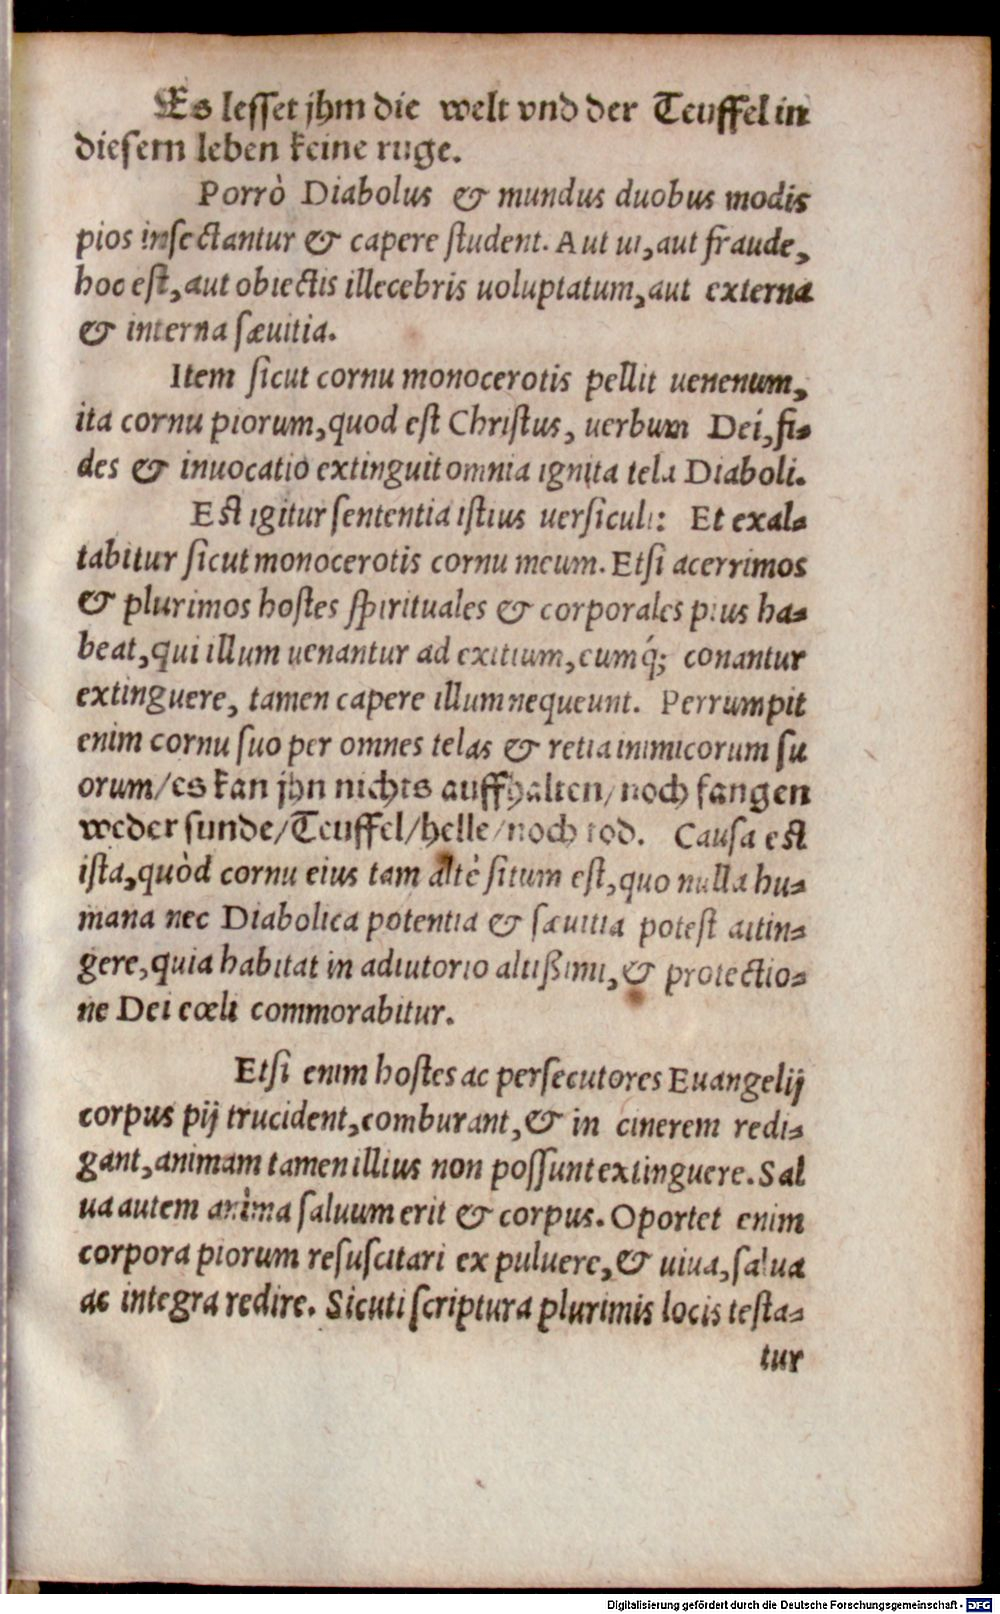 Es lesset jhm die welt vnd der Teuffel in
diesem leben keine ruge.
Porrò Diabolus & mundus duobus modis
pios insectantur & capere student. Aut ui, aut fraude,
hoc est, aut obiectis illecebris uoluptatum, aut externa
& interna sæuitia.
Item sicut cornu monocerotis pellit uenenum,
ita cornu piorum, quod est Christus, uerbum Dei, fi-
des & inuocatio extinguit omnia ignita tela Diaboli.
Est igitur sententia istius uersiculi: Et exal-
tabitur sicut monocerotis cornu meum. Etsi acerrimos
& plurimos hostes spirituales & corporales pius ha-
beat, qui illum uenantur ad exitium, eumq́; conantur
extinguere, tamen capere illum nequeunt. Perrumpit
enim cornu suo per omnes telas & retia inimicorum su
orum/es kan jhn nichts auffhalten/noch fangen
weder sunde/Teuffel/helle/noch tod. Causa est
ista, quòd cornu eius tam altè situm est, quo nulla hu-
mana nec Diabolica potentia & sæuitia potest attin-
gere, quia habitat in adiutorio altißimi, & protectio-
ne Dei cœli commorabitur.
Etsi enim hostes ac persecutores Euangelij
corpus pij trucident, comburant, & in cinerem redi-
gant, animam tamen illius non possunt extinguere. Sal
ua autem anima saluum erit & corpus. Oportet enim
corpora piorum resuscitari ex puluere, & uiua, salua
ac integra redire. Sicuti scriptura plurimis locis testa-
tur
Digitalisierung gefördert durch die Deutsche Forschungsgemeinschaft - DFG